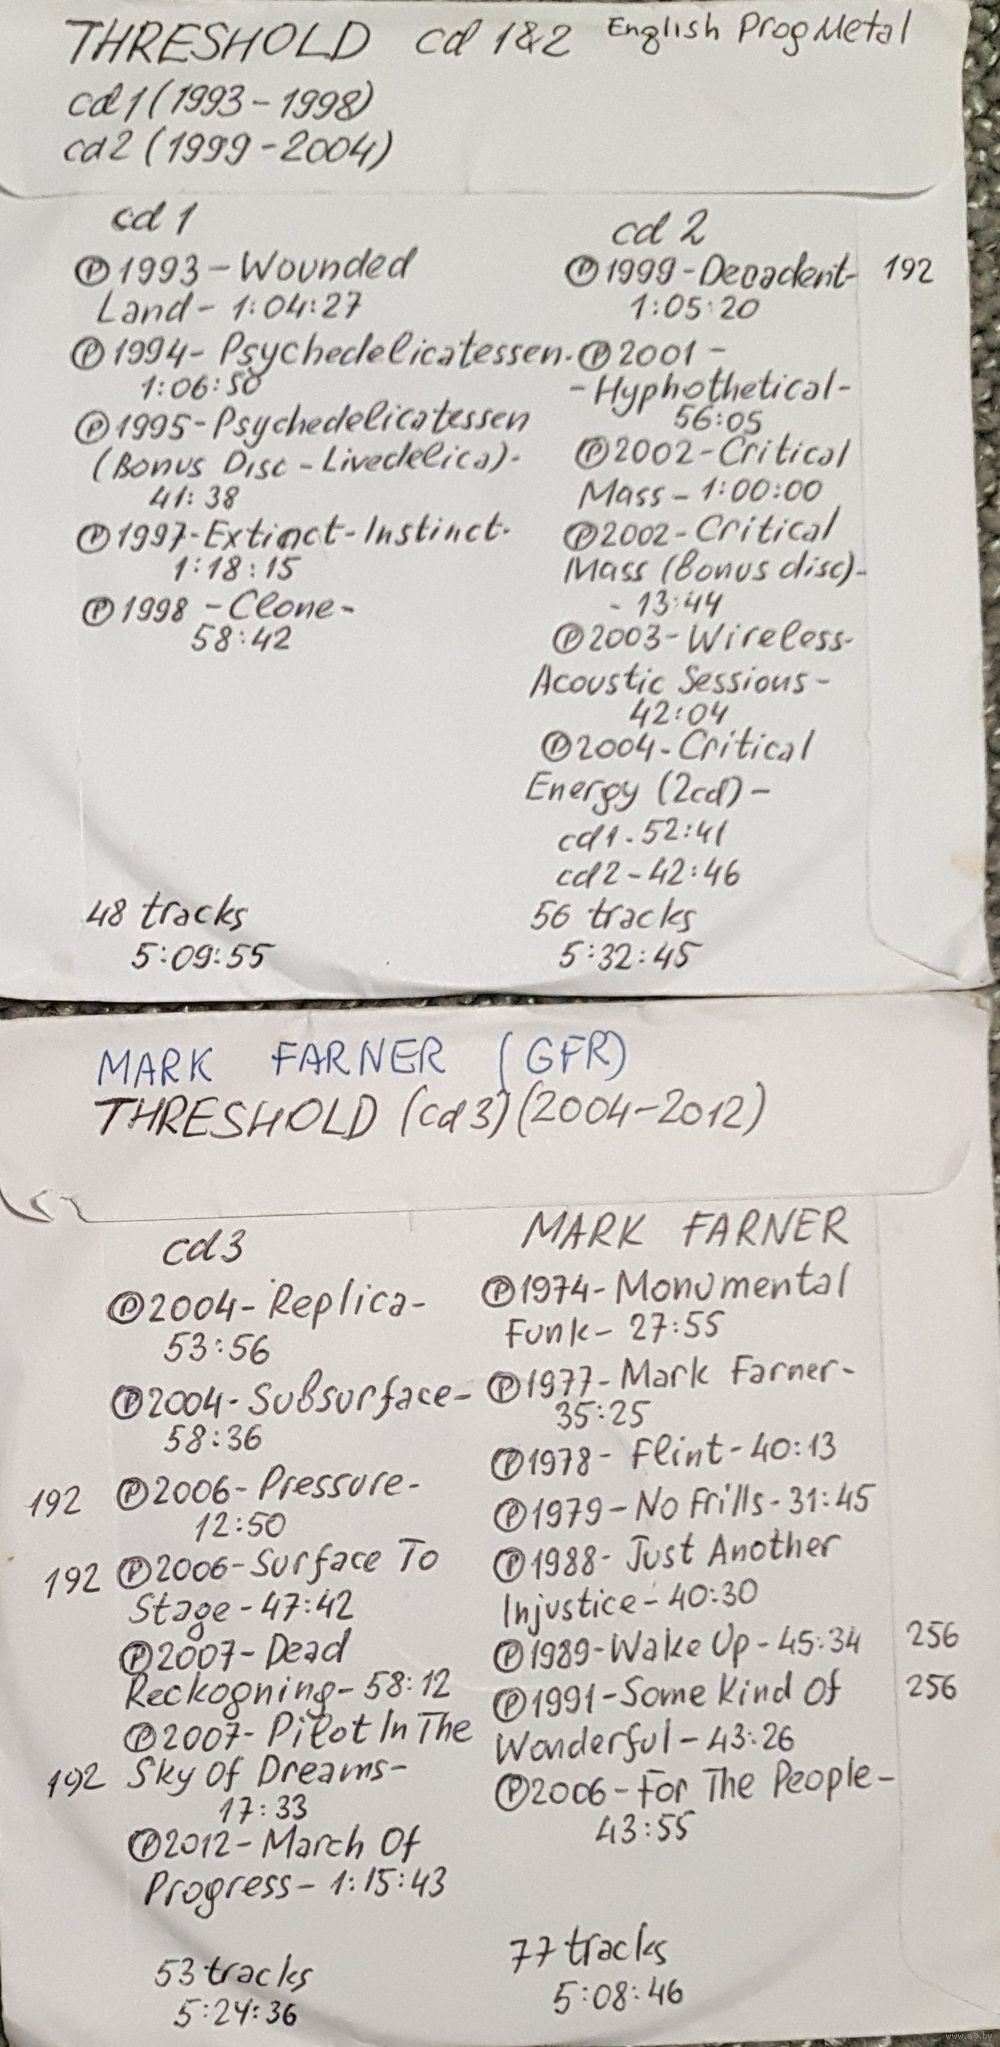 THRESHOLD cd 1&2 English Prog Metal
cd1 (1993-1998)
cd2 (1999-2004)
cd 1
Ⓟ1993-Wounded
Land- 1:04:27
Ⓟ1994- Psychedelicatessen-
1:06:50
Ⓟ1995-Psychedelicatessen
(Bonus Disc-Livedelica)-
41:38
Ⓟ1997-Extinct-Instinct-
1:18:15
Ⓟ1998-Clone-
58:42
48 tracks
5:09:55
cd 2
Ⓟ1999-Decadent- 192
1:05:20
Ⓟ2001-
-Hyphothetical-
56:05
Ⓟ2002-Critical
Mass- 1:00:00
Ⓟ2002-Critical
Mass (Bonus disc)-
- 13:44
Ⓟ2003-Wireless-
Acoustic Sessions-
42:04
Ⓟ2004-Critical
Energy (2cd)-
cd1-52:41
cd2-42:46
56 tracks
5:32:45
MARK FARNER (GFR)
THRESHOLD (cd3) (2004-2012)
cd3
Ⓟ2004-Replica-
53:56
Ⓟ2004-Subsurface-
58:36
192 Ⓟ2006-Pressure-
12:50
192 Ⓟ2006-Surface To
Stage-47:42
Ⓟ2007-Dead
Reckogning-58:12
Ⓟ2007-Pilot In The
192 Sky Of Dreams-
17:33
Ⓟ2012-March Of
Progress- 1:15:43
53 tracks
5:24:36
MARK FARNER
Ⓟ1974-Monumental
Funk- 27:55
Ⓟ1977-Mark Farner-
35:25
Ⓟ1978- Flint-40:13
Ⓟ1979-No Frills-31:45
Ⓟ1988-Just Another
Injustice-40:30
Ⓟ1989-Wake Up-45:34 256
Ⓟ1991-Some Kind Of 256
Wonderful-43:26
Ⓟ2006-For The People-
43:55
77 tracks
5:08:46
www.ay.by